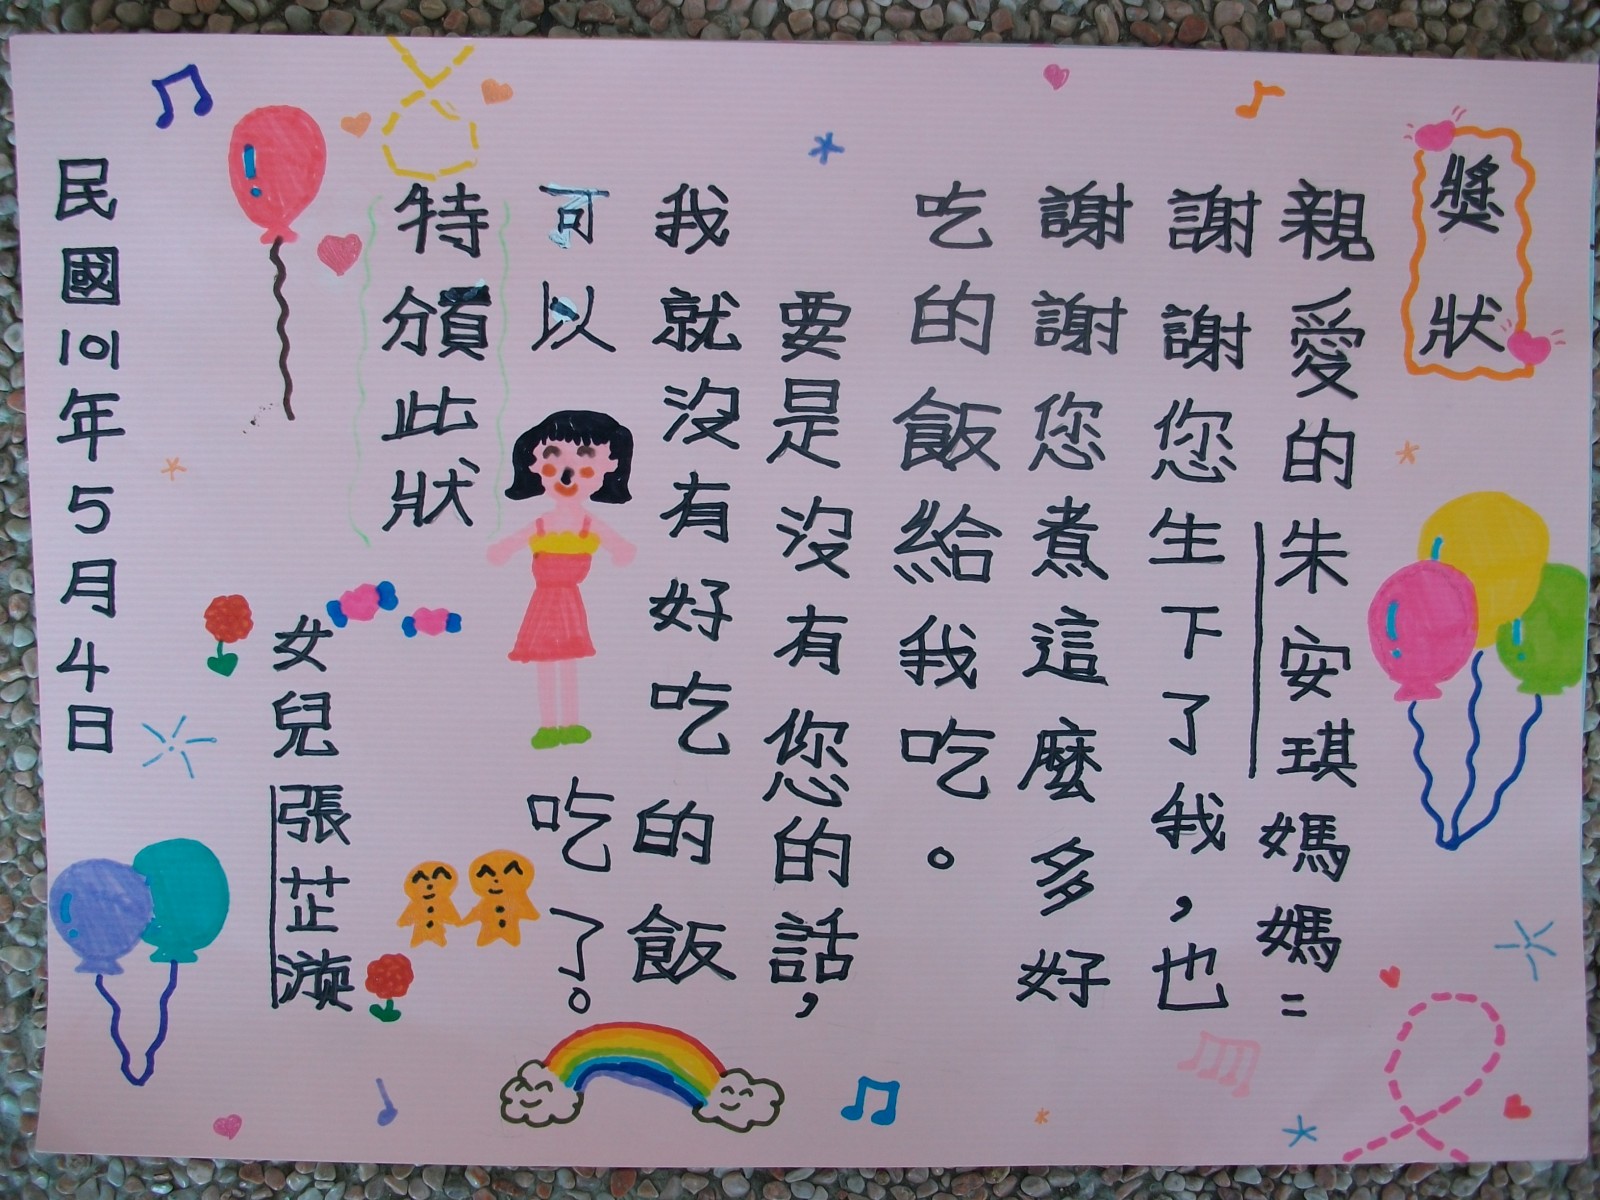 獎狀
親愛的朱安琪媽媽：
謝謝您生下了我，也
謝謝您煮這麼多好
吃的飯給我吃。
要是沒有您的話，
我就沒有好吃的飯
可以吃了。
特頒此狀
女兒張芷漩
民國101年5月4日